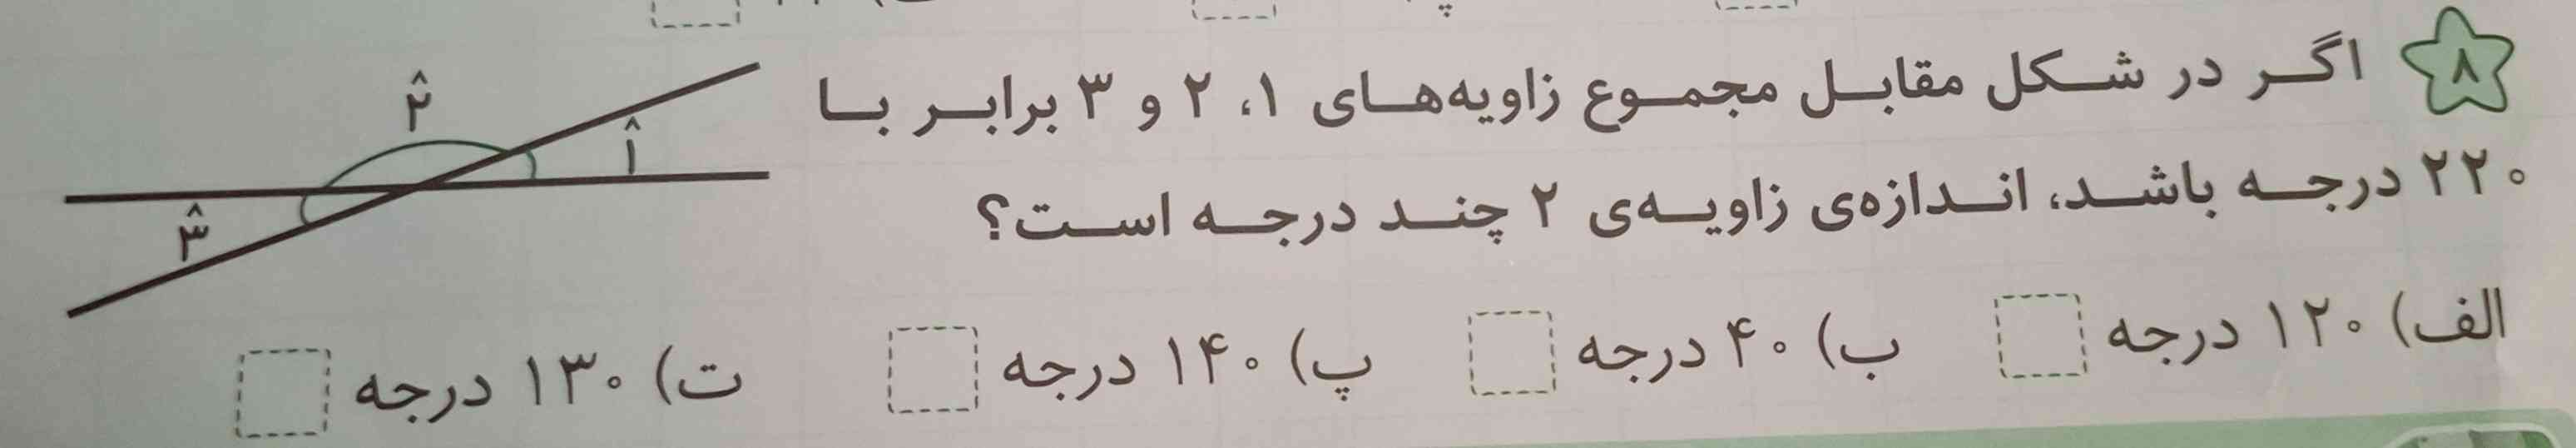 ۸ اگر در شکل مقابل مجموع زاویه‌های ۱، ۲ و ۳ برابر با
۲۲۰ درجه باشد، اندازه‌ی زاویه‌ی ۲ چند درجه است؟
الف) ۱۲۰ درجه ب) ۴۰ درجه پ) ۱۴۰ درجه ت) ۱۳۰ درجه
۲̂
۱̂
۳̂